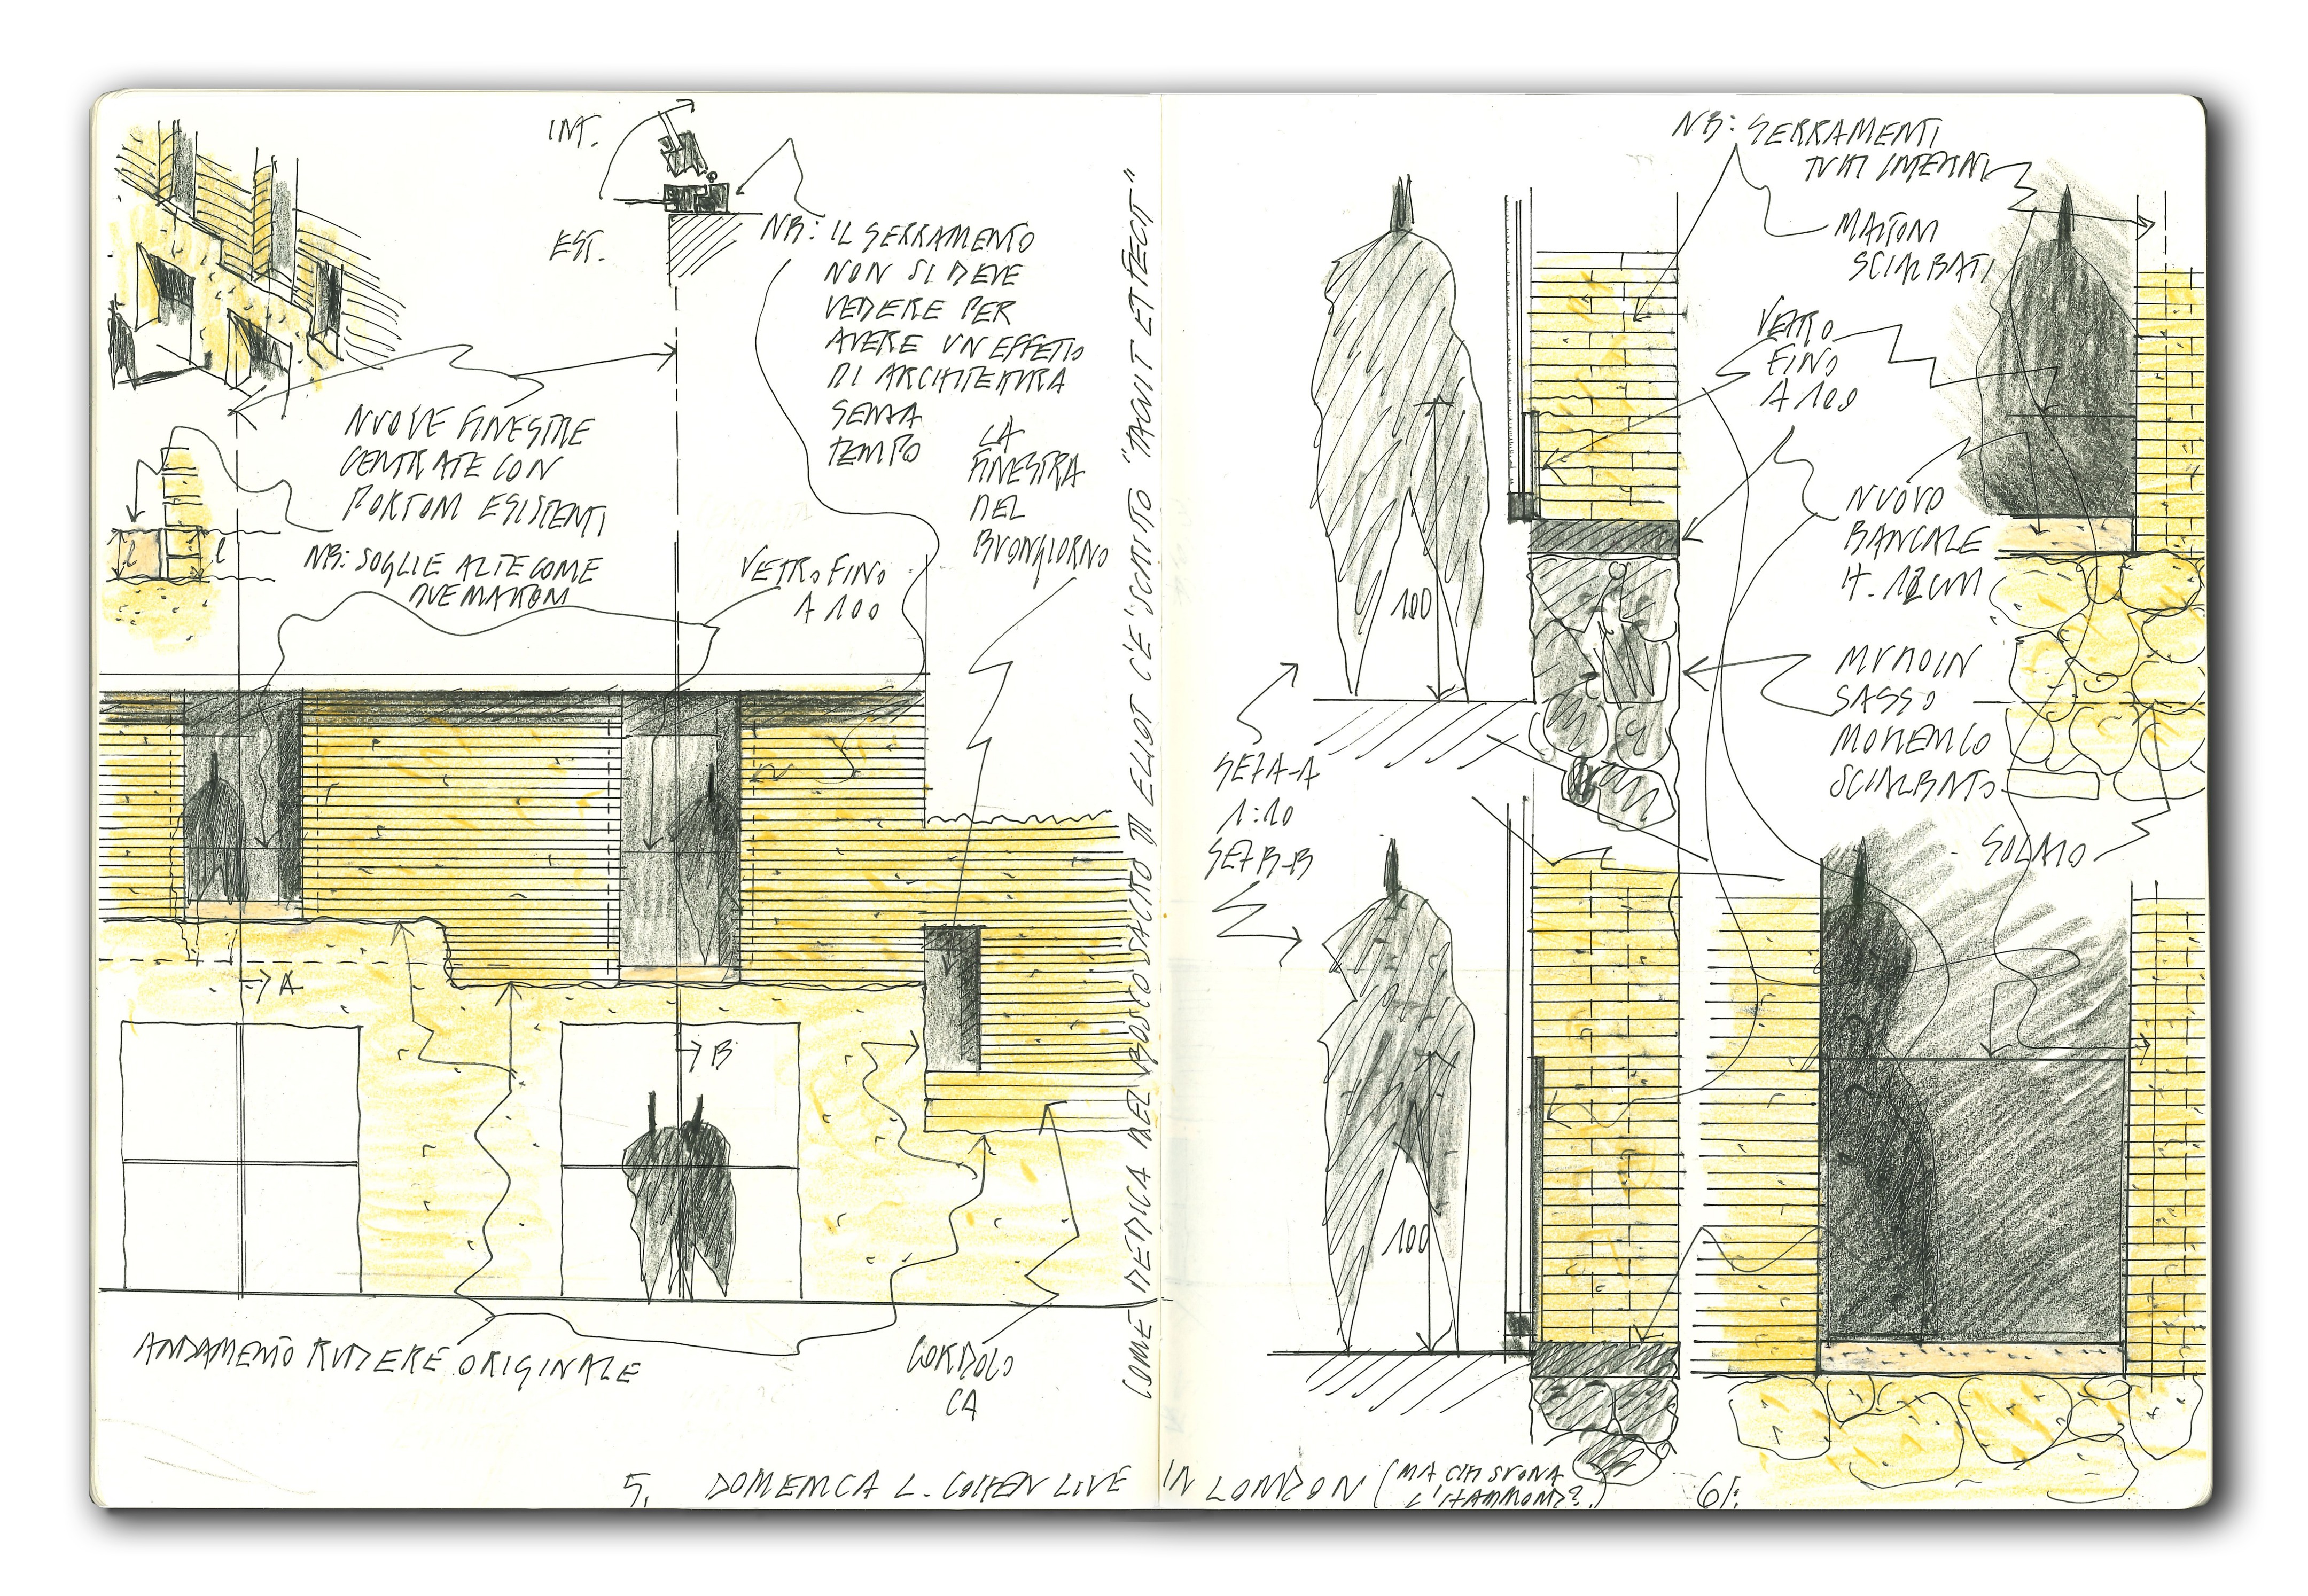 INT.
EST.
NB: IL SERRAMENTO
NON SI DEVE
VEDERE PER
AVERE UN EFFETTO
DI ARCHITETTURA
SENZA
TEMPO
NUOVE FINESTRE
CENTRATE CON
PORTONI ESISTENTI
NB: SOGLIE ALTE COME
DUE MATTONI
l
l
VETRO FINO
A 100
LA
FINESTRA
DEL
BUONGIORNO
A
B
ANDAMENTO RUDERE ORIGINALE
CORDOLO
CA
COME DEDICA NEL BOSCO SACRO DI ELIOT C'È SCRITTO "TACUIT ET FECIT"
5. DOMENICA L. COHEN LIVE
IN LONDON (MA CHI SUONA
L'HAMMOND?)
6/.
NB: SERRAMENTI
TUTTI INTERNI
MATTONI
SCIALBATI
VETRO
FINO
A 100
NUOVO
BANCALE
H. 12 CM
MURO IN
SASSO
MORENICO
SCIALBATO
SOLAIO
SEZ A-A
1:10
SEZ B-B
100
100